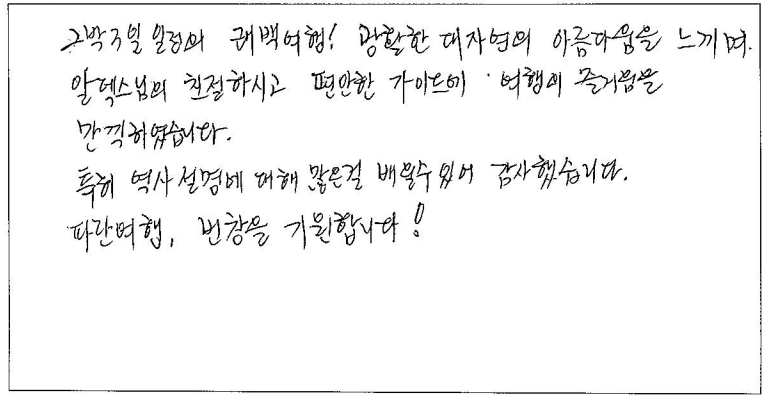 2박3일 일정의 퀘백여행! 광활한 대자연의 아름다움을 느끼며.
알렉스님의 친절하시고 편안한 가이드에 여행의 즐거움을
만끽하였습니다.
특히 역사설명에 대해 많은걸 배울수 있어 감사했습니다.
파란여행, 번창을 기원합니다!